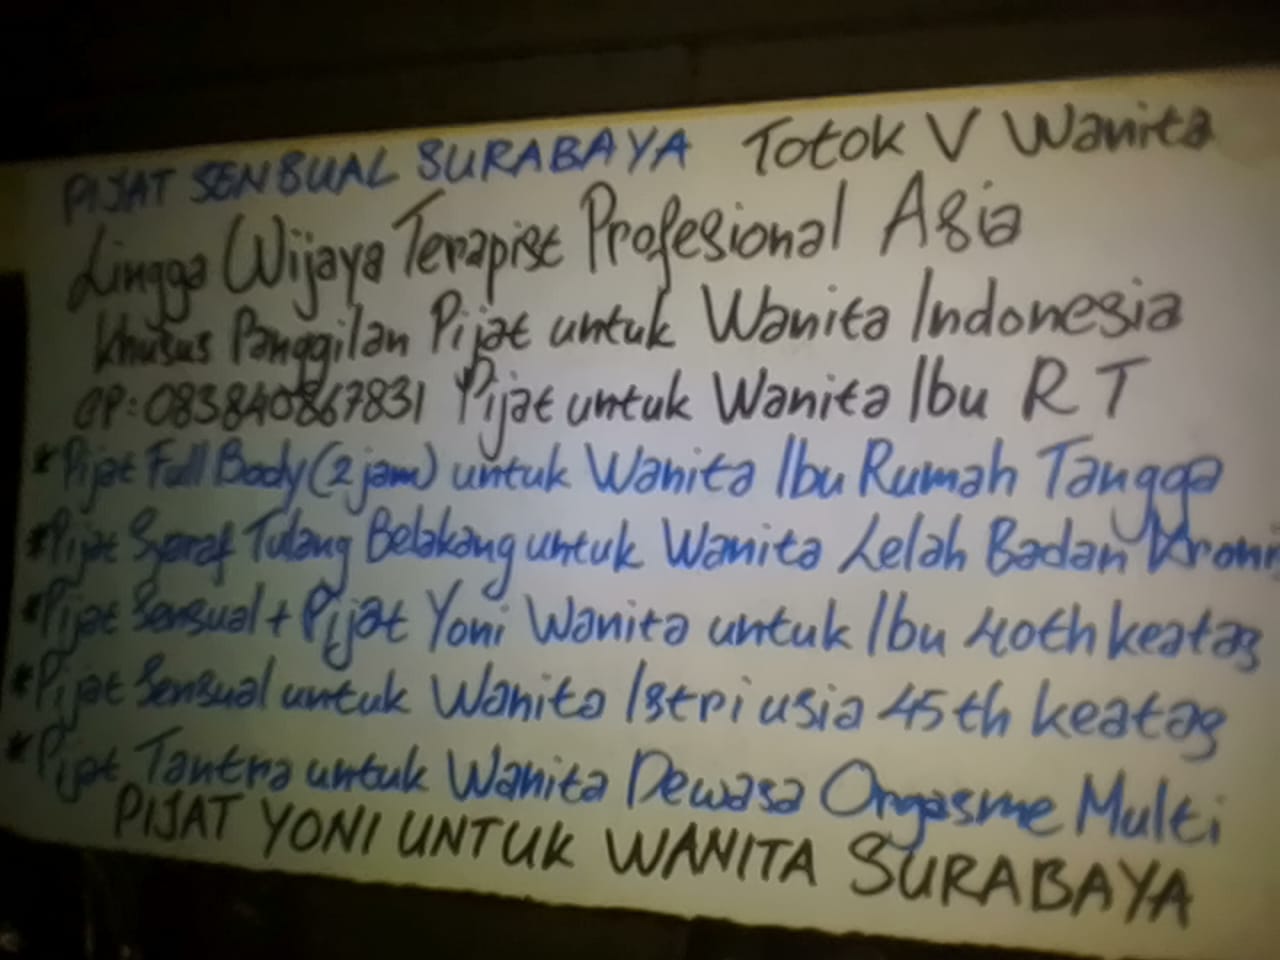 PIJAT SENSUAL SURABAYA Totok V Wanita
Lingga Wijaya Terapist Profesional Asia
Khusus Panggilan Pijat untuk Wanita Indonesia
CP: 083840867831 Pijat untuk Wanita Ibu RT
* Pijat Full Body (2 jam) untuk Wanita Ibu Rumah Tangga
* Pijat Syaraf Tulang Belakang untuk Wanita Lelah Badan Kroni
* Pijat Sensual + Pijat Yoni Wanita untuk Ibu 40th keatas
* Pijat Sensual untuk Wanita Istri usia 45th keatas
* Pijat Tantra untuk Wanita Dewasa Orgasme Multi
PIJAT YONI UNTUK WANITA SURABAYA